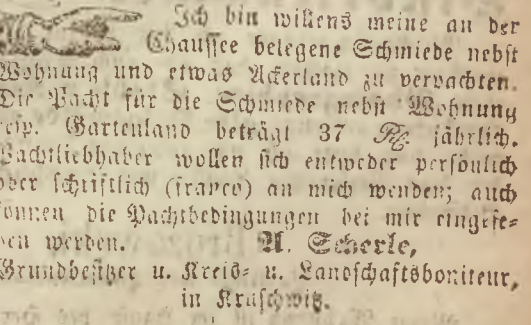 Ich bin willens meine an der
Chaussee belegene Schmiede nebst
Wohnung und etwas Ackerland zu verpachten.
Die Pacht für die Schmiede nebst Wohnung
resp. Gartenland beträgt 37 Rt. jährlich.
Pachtliebhaber wollen sich entweder persönlich
oder schriftlich (franco) an mich wenden; auch
können die Pachtbedingungen bei mir eingese-
hen werden. A. Scherle,
Grundbesitzer u. Kreis- u. Landschaftsboniteur,
in Kruschwitz.